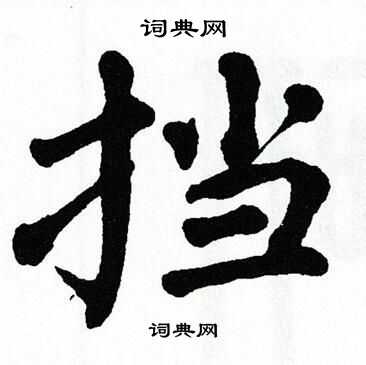 词典网
挡
词典网